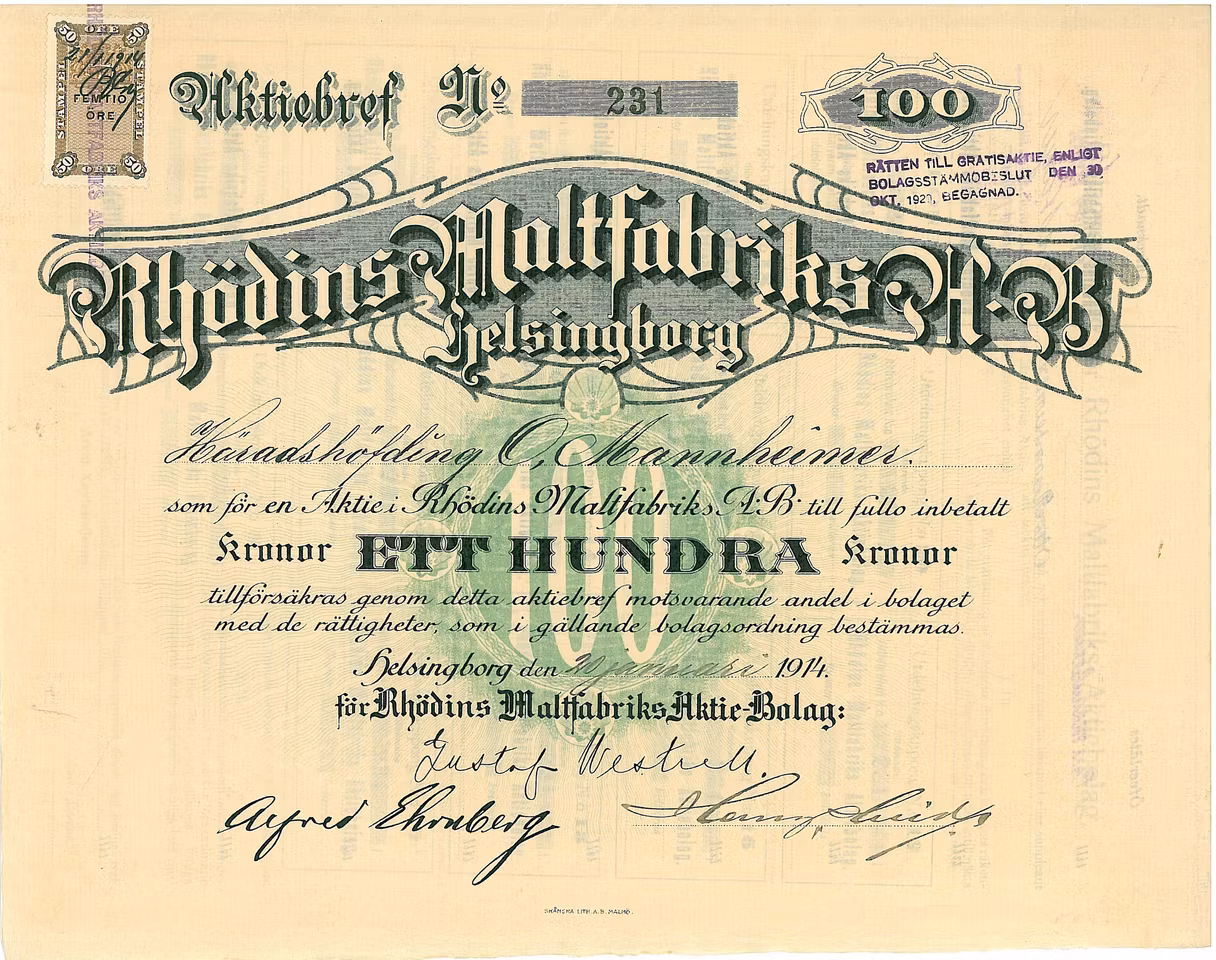 50 ÖRE 50
STÄMPEL STÄMPEL
FEMTIO
ÖRE
50 ÖRE 50
Aktiebref No 231 100
RÄTTEN TILL GRATISAKTIE, ENLIGT
BOLAGSSTÄMMOBESLUT DEN 30
OKT. 1920, BEGAGNAD.
Rhödins Maltfabriks A.-B.
Helsingborg
Häradshöfding O. Mannheimer.
som för en Aktie i Rhödins Maltfabriks A.B. till fullo inbetalt
Kronor ETT HUNDRA Kronor
100
tillförsäkras genom detta aktiebref motsvarande andel i bolaget
med de rättigheter, som i gällande bolagsordning bestämmas.
Helsingborg den januari 1914.
för Rhödins Maltfabriks Aktie-Bolag:
Gustaf Westrell.
Alfred Ehrnberg
SKÅNSKA LITH. A.B. MALMÖ.